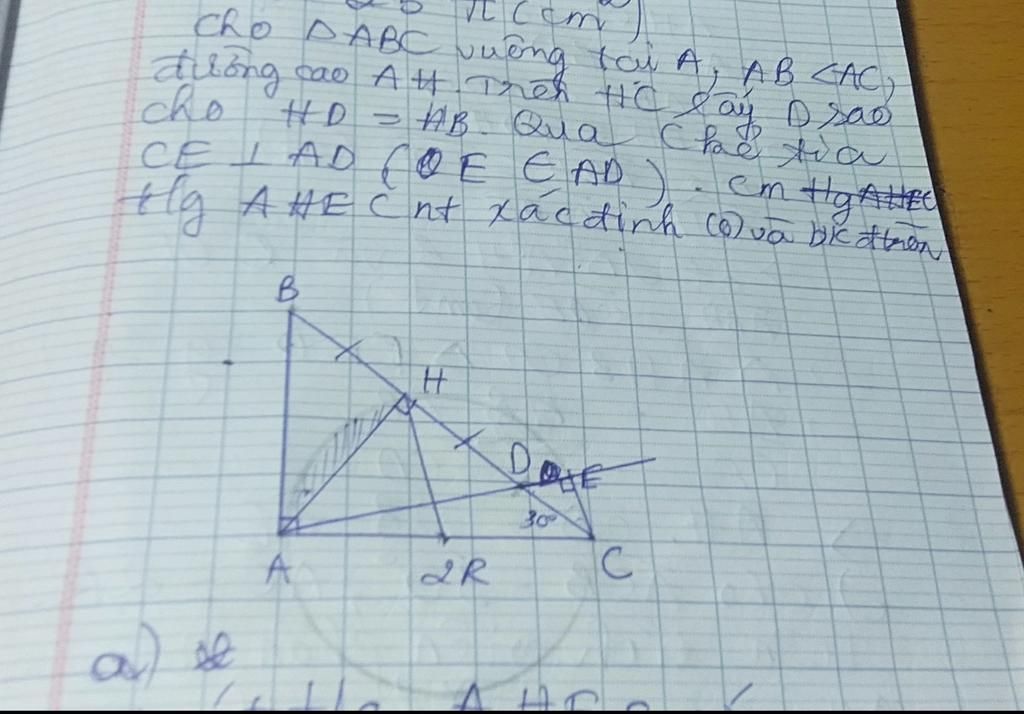 π (cm²)
Cho ΔABC vuông tại A, AB < AC,
đường cao AH. Trên HC lấy D sao
cho HD = HB. Qua C kẻ tia
CE ⊥ AD (E ∈ AD). Cm
tfg AHEC nt xác định (O) và bk đtròn
B
H
D
E
30°
A
2R
C
a)